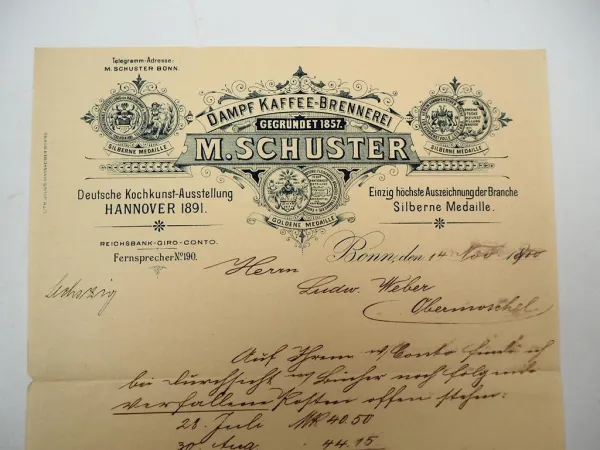 Telegramm-Adresse:
M. SCHUSTER BONN.
DAMPF KAFFEE-BRENNEREI
GEGRÜNDET 1857.
M. SCHUSTER
SILBERNE MEDAILLE
SILBERNE MEDAILLE
GOLDENE MEDAILLE
Deutsche Kochkunst-Ausstellung
HANNOVER 1891.
Einzig höchste Auszeichnung der Branche
Silberne Medaille.
REICHSBANK-GIRO-CONTO.
Fernsprecher No. 190.
Bonn, den 14 Nov 1900
Herrn
Ludw. Weber
Obermoschel
Auf Ihrem w/ Conto finde ich
bei Durchsicht w/ Bücher noch folgende
verfallene Posten offen stehn:
28. Juli MK 40.50
30. Aug . 44.15